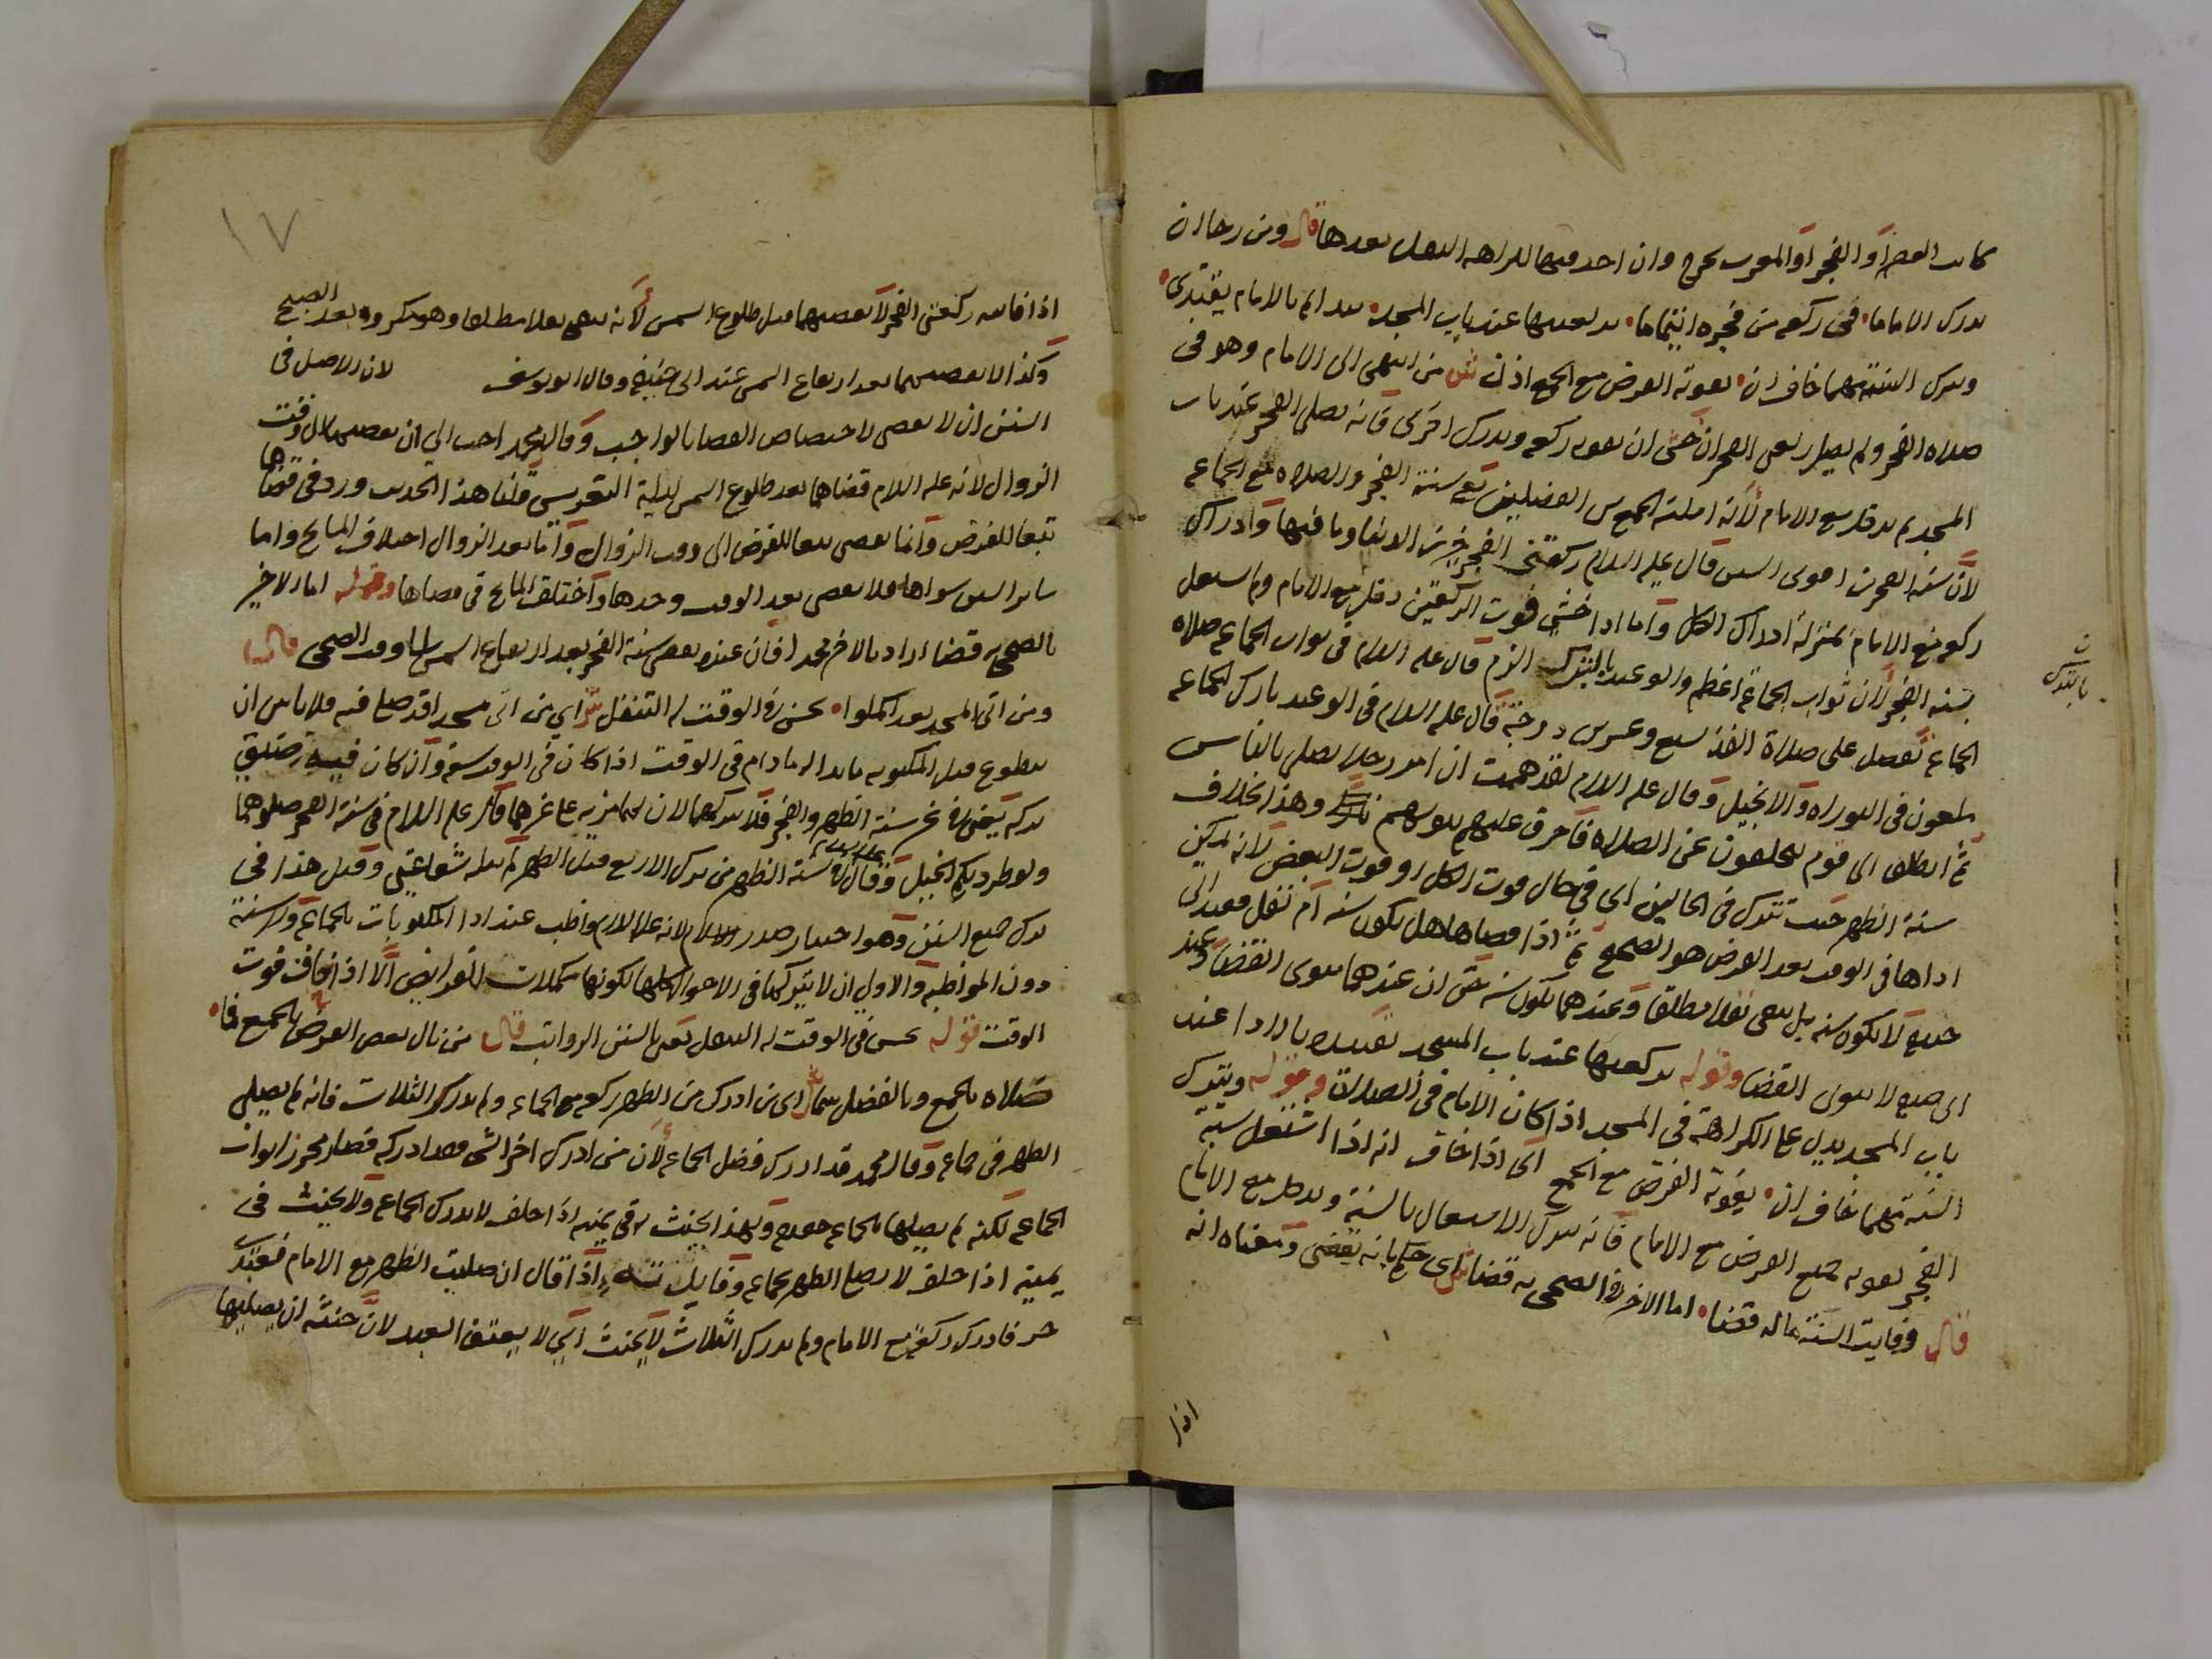 كانت العصر أو الفجر أو المغرب يخرج وان احد فيها لكراهه النفل بعدها قال ومن رجا ان
يدرك الاماما في ركعه من فجره ائتماما يركعها عند باب المسجد بدا بالامام يقتدى
ويترك السنة مهما خاف ان يفوته الفرض مع الجمع اذن ش من انتهى الى الامام وهو فى
صلاه الفجر ولم يصل ركعتى الفجر ان خشى ان تفوته ركعه ويدرك اخرى فانه يصلى الفجر عند باب
المسجد ثم يدخل مع الامام لأنه امكنه الجمع بين الفضيلتين سنة الفجر والصلاه مع الجماعه
لأن سنه الفجر من اقوى السنن قال عليه السلام ركعتى الفجر خير من الدنيا وما فيها وادراك
ركعه مع الامام بمنزلة ادراك الكل واما اذا خشى فوت الركعتين دخل مع الامام ولم يشتغل
بسنه الفجر لأن ثواب الجماعة اعظم والوعيد بالترك الزم قال عليه السلام فى ثواب الجماعه صلاه
الجماعة تفضل على صلاة الفذ بسبع وعشرين درجة قال عليه السلام فى الوعيد تارك الجماعه
ملعون فى التوراه والانجيل وقال عليه السلام لقد هممت ان امر رجلا يصلى بالناس
ثم انطلق الى قوم يتخلفون عن الصلاه فاحرق عليهم بيوتهم وهذا بخلاف
سنة الظهر حيث تترك فى الحالين اى فى حال فوت الكل او فوت البعض لأنه يمكن
اداها فى الوقت بعد الفرض هو الصحيح ثم اذا قضاها هل تكون سنه أم نفل فعند ابى
حنيفه لا تكون سنه بل تبقى نفلا مطلقا وعندهما تكون سنه حتى ان عندهما ينوى القضا وعند
ابى حنيفه لا ينوى القضا وقوله يركعها عند باب المسجد تقييده بالادا عند
باب المسجد يدل على الكراهة فى المسجد اذا كان الامام فى الصلاة وقوله ويترك
السنة مهما خاف ان يفوته الفرض مع الجمع اى اذا خاف انه اذا اشتغل بسنة
الفجر تفوته جميع الفرض مع الامام فانه يترك الاشتغال بالسنة ويدخل مع الامام
قال وفايت السنة ماله قضا اما الاخير فى الضحى به قضا ش اى حكم بانه يقضى ومعناه انه
اذا
بالترك
١٧
اذا فاتته ركعتى الفجر لا يقضيهما قبل طلوع الشمس لأنه يبقى نفلا مطلقا وهو مكروه بعد الصبح
وكذا لا يقضيهما بعد ارتفاع الشمس عند ابى حنيفه وقال ابو يوسف لان الاصل فى
السنن ان لا تقضى لاختصاص القضا بالواجب وقال محمد احب الي ان يقضيهما الى وقت
الزوال لانه عليه السلام قضاهما بعد طلوع الشمس ليلة التعريس قلنا هذا الحديث ورد فى قضاها
تبعا للفرض وانما تقضى تبعا للفرض الى وقت الزوال وأما بعد الزوال اختلاف المشايخ واما
ساير السنن سواها فلا تقضى بعد الوقت وحدها واختلف المشايخ فى قضاها وقوله اما الاخير
بالضحى به قضا اراد بالاخير محمدا فان عنده يقضى سنة الفجر بعد ارتفاع الشمس وقت الضحى قال
ومن اتى المسجد بعد اكملوا يحسن فى الوقت له التنفل ش اي من اتى مسجدا قد صلي فيه فلا باس ان
يتطوع قبل المكتوبه ما بدا له ما دام فى الوقت اذا كان فى الوقت سعة وان كان فيه ضيق
تركه يعنى فى غير سنة الظهر والفجر فلا يتركهما لان لهما مزيه على غيرهما قال عليه السلام فى سنة الفجر صلوهما
ولو طردتكم الخيل وقال فى سنة الظهر من ترك الاربع قبل الظهر لم تنله شفاعتى وقيل هذا فى
ترك جميع السنن وهو اختيار صدر الاسلام لانه عليه السلام واظب عند ادا المكتوبات بالجماعة ولا سنة
دون المواظبة والاولى ان لا يتركها فى الاحوال كلها لكونها مكملات للفرايض الا اذا خاف فوت
الوقت قوله يحسن فى الوقت له التنفل يعنى بالسنن الرواتب قال من نال بعض الفرض بالجمع فما
صلاه بالجمع وبالفضل سما ش اى من ادرك من الظهر ركعه مع الجماعه ولم يدرك الثلاث فانه لم يصلى
الظهر فى جماعه وقال محمد قد ادرك فضل الجماعه لأن من ادرك اخر الشى فقد ادركه فصار محرزا ثواب
الجماعه لكنه لم يصليها بالجماعه حقيقه ولهذا يحنث به فى يمينه اذا حلف لا يدرك الجماعه ولا يحنث فى
يمينه اذا حلف لا يصلي الظهر بجماعه وفايدته اذا قال ان صليت الظهر مع الامام فعبدى
حر فادرك ركعة مع الامام ولم يدرك الثلاث لا يحنث اي لا يعتق العبد لأن حنثه ان يصليها